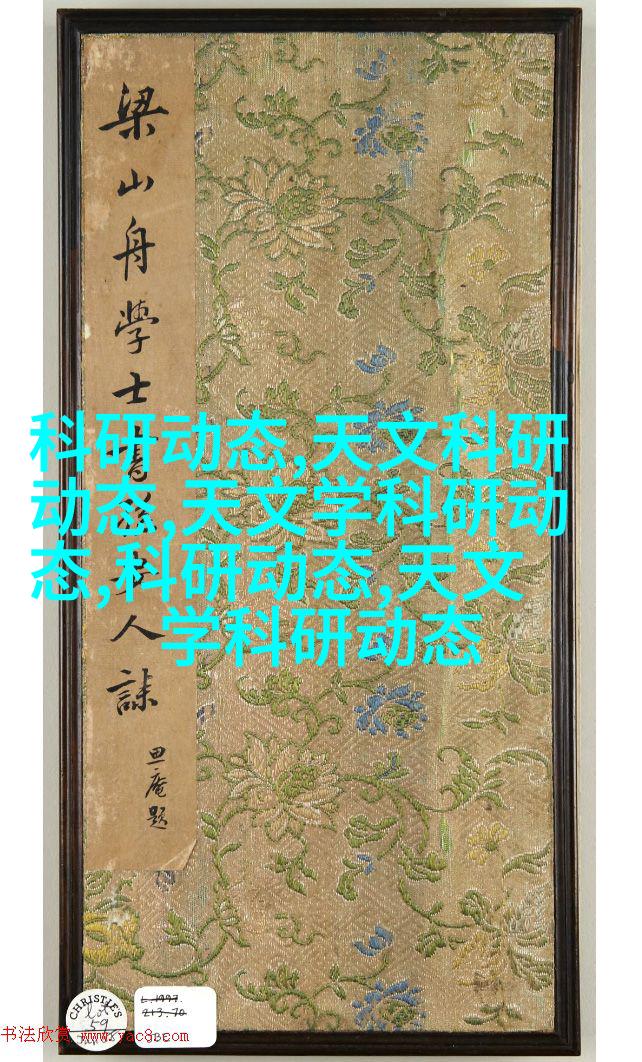 梁山舟學士書
人誄
思庵題
科研动态,天文科研
动态,天文学科研动
态,科研动态,天文
学科研动态
CHRISTIE'S
lot
59
L.1997.
213.70
书法欣赏 www.yac8.com